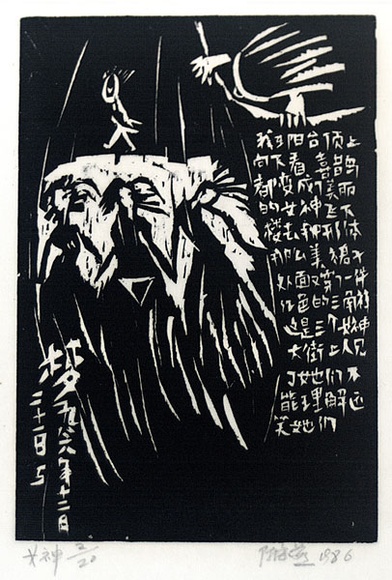 我到阳台顶上
向下看喜鹊
都变成美丽
的女神飞下
楼去种形体
那么美裙子
外面又穿了一件
红色的三角裤
这是三个女神
大街上人见
了她们不
能理解还
笑她们
梦一九八六年十二月
二十二日
女神 2/20
陈海燕 1986